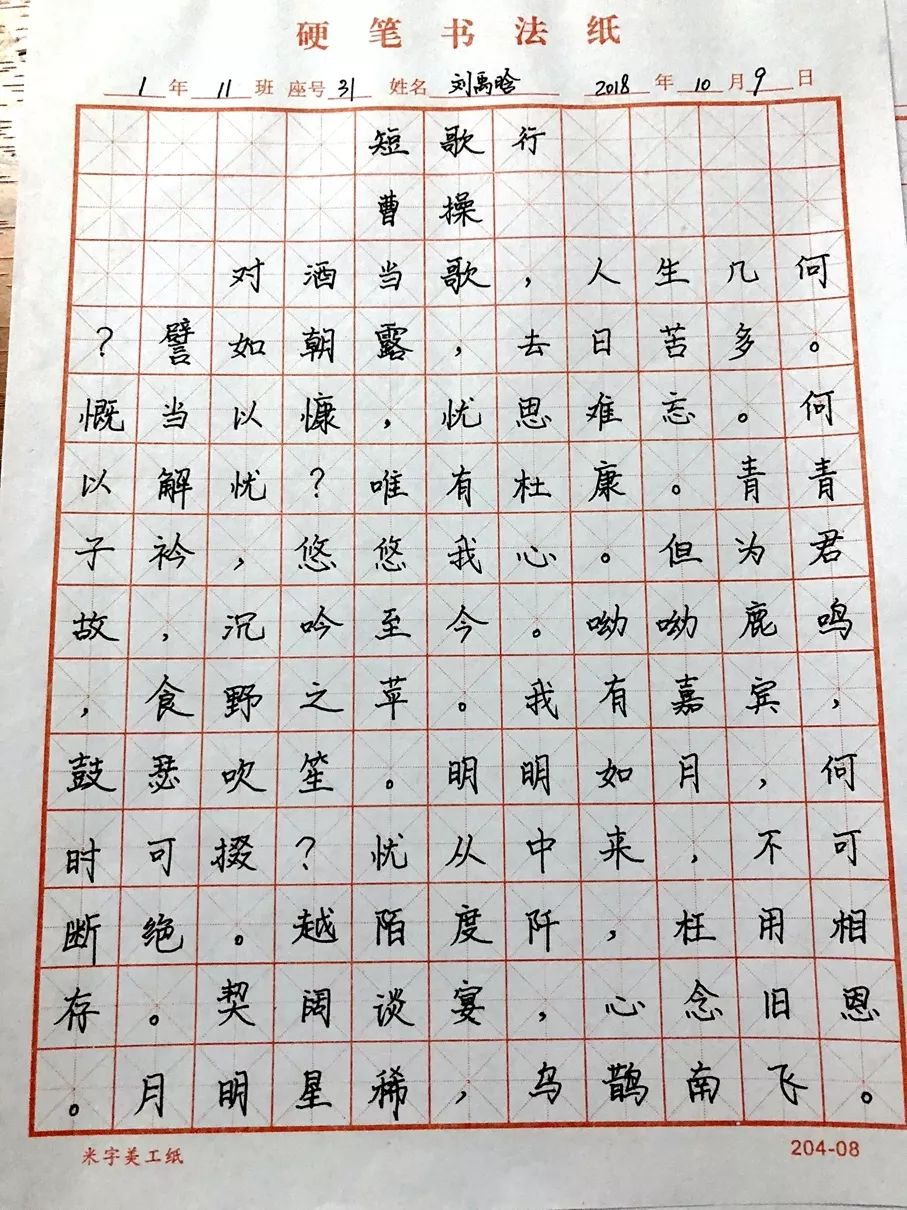 硬笔书法纸
1年11班 座号31 姓名刘禹晗 2018年10月9日
短歌行
曹操
对酒当歌，人生几何
？譬如朝露，去日苦多。
慨当以慷，忧思难忘。何
以解忧？唯有杜康。青青
子衿，悠悠我心。但为君
故，沉吟至今。呦呦鹿鸣
，食野之苹。我有嘉宾，
鼓瑟吹笙。明明如月，何
时可掇？忧从中来，不可
断绝。越陌度阡，枉用相
存。契阔谈宴，心念旧恩
。月明星稀，乌鹊南飞。
米字美工纸 204-08